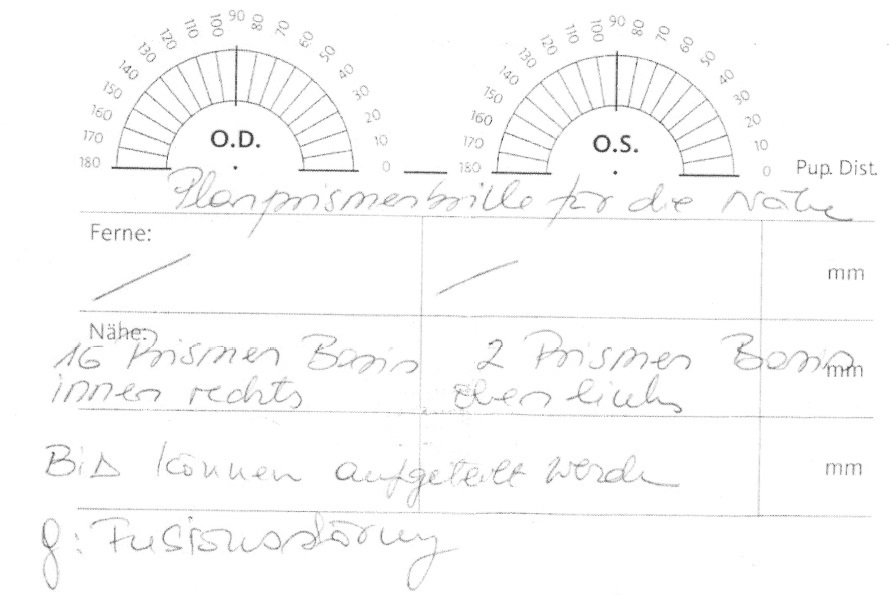 180 170 160 150 140 130 120 110 100 90 80 70 60 50 40 30 20 10 0
O.D.
180 170 160 150 140 130 120 110 100 90 80 70 60 50 40 30 20 10 0
O.S.
Pup. Dist.
Planprismenbrille für die Nähe
Ferne:
mm
Nähe:
16 Prismen Basis
innen rechts
2 Prismen Basis
oben links
mm
BiΔ können aufgeteilt werden
mm
g: Fusionsstörung